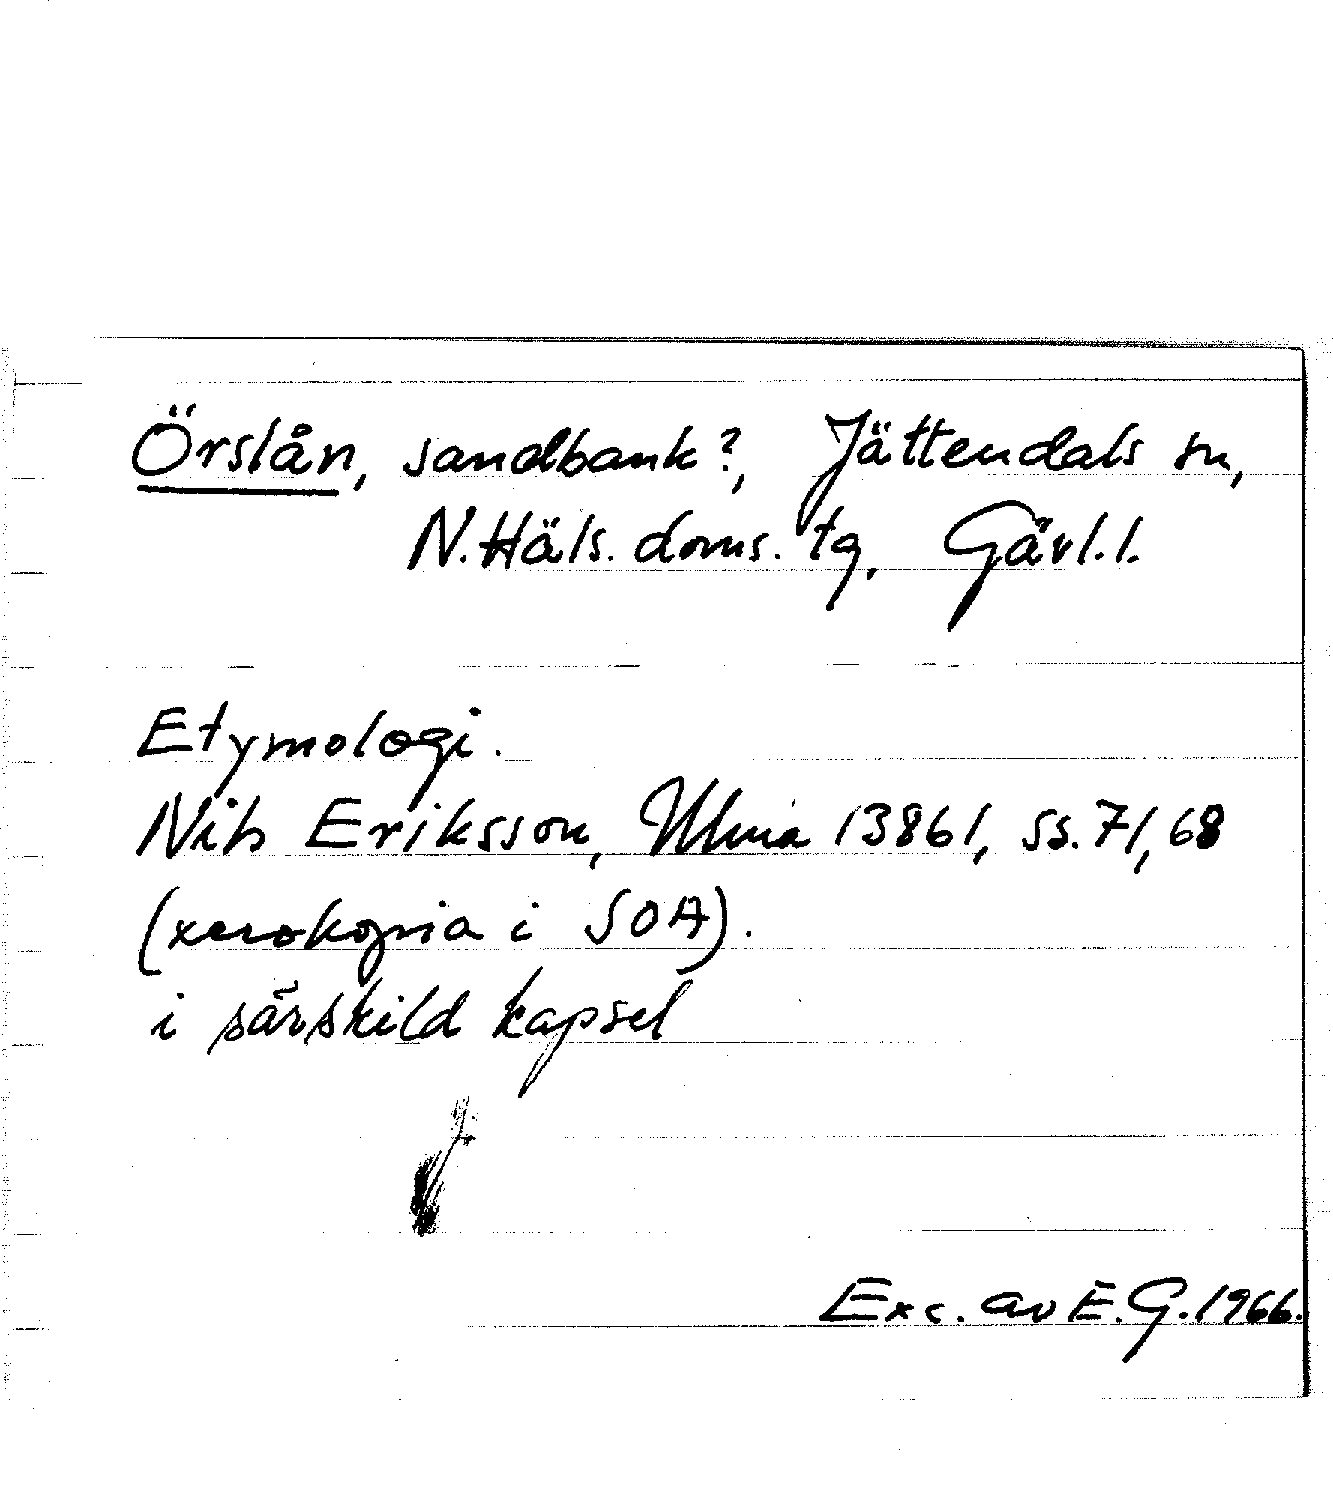 Örslån, sandbank?, Jättendals sn,
N. Häls. doms. tg, Gävl. l.
Etymologi.
Nils Eriksson, Ulma 13861, ss. 71, 68
(xerokopia i SOA).
i särskild kapsel
Exc. av E. G. 1966.